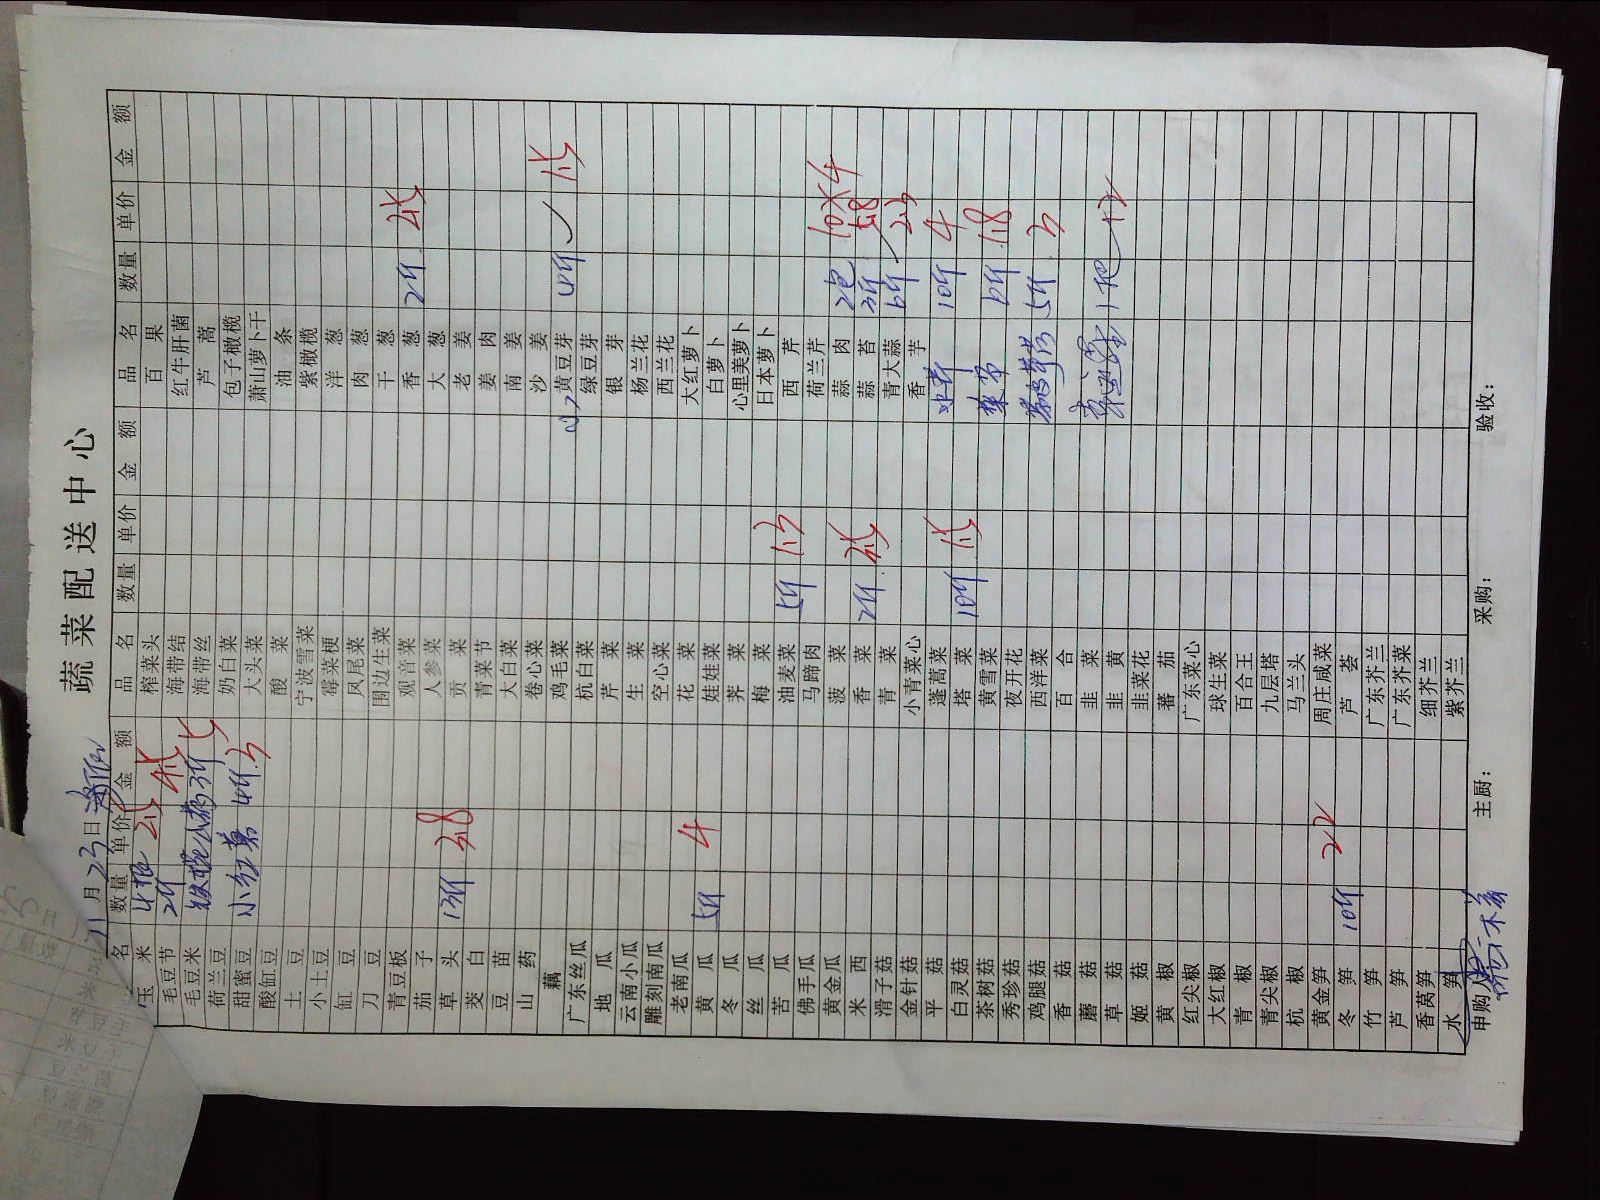 蔬菜配送中心
11月23日
品名 数量 单价 金额 品名 数量 单价 金额 品名 数量 单价 金额
玉米 榨菜头 百果
毛豆节 2斤 海带结 红牛肝菌
毛豆米 海带丝 芦蒿
荷兰豆 奶白菜 包子橄榄
甜蜜豆 小红薯 4斤 3 大头菜 萧山萝卜干
酸缸豆 酸菜 油条
土豆 宁波雪菜 紫橄榄
小土豆 霉菜梗 洋葱
缸豆 凤尾菜 肉葱
刀豆 围边生菜 干葱
青豆板 观音菜 香葱 2斤
茄子 人参菜 大葱
草头 13斤 3.8 贡菜 老姜
茭白 青菜节 姜肉
豆苗 大白菜 南姜
山药 卷心菜 沙姜
藕 鸡毛菜 黄豆芽 4斤
广东丝瓜 杭白菜 绿豆芽
地瓜 芹菜 银芽
云南小瓜 生菜 杨兰花
雕刻南瓜 空心菜 西兰花
老南瓜 花菜 大红萝卜
黄瓜 5斤 4 娃娃菜 白萝卜
冬瓜 荠菜 心里美萝卜
丝瓜 梅菜 日本萝卜
苦瓜 油麦菜 5斤 1.3 西芹
佛手瓜 马蹄肉 荷兰芹
黄金瓜 菠菜 蒜肉 2包 10×4
米西 香菜 2斤 蒜苔 3斤
滑子菇 青菜 青大蒜 6斤 2.3
金针菇 小青菜心 香芋
平菇 蓬蒿菜 水芹 10斤 4
白灵菇 塔菜 10斤
茶树菇 黄雪菜 1.8
秀珍菇 夜开花
鸡腿菇 西洋菜 5斤 3
香菇 百合
蘑菇 韭菜
草菇 韭黄 1把 12
姬菇 韭菜花
黄椒 蕃茄
红尖椒 广东菜心
大红椒 球生菜
青椒 百合王
青尖椒 九层塔
杭椒 马兰头
黄金笋 周庄咸菜
冬笋 10斤 22 芦荟
竹笋 广东芥兰
芦笋 广东芥菜
香莴笋 细芥兰
水笋 紫芥兰
申购人: 主厨: 采购: 验收: